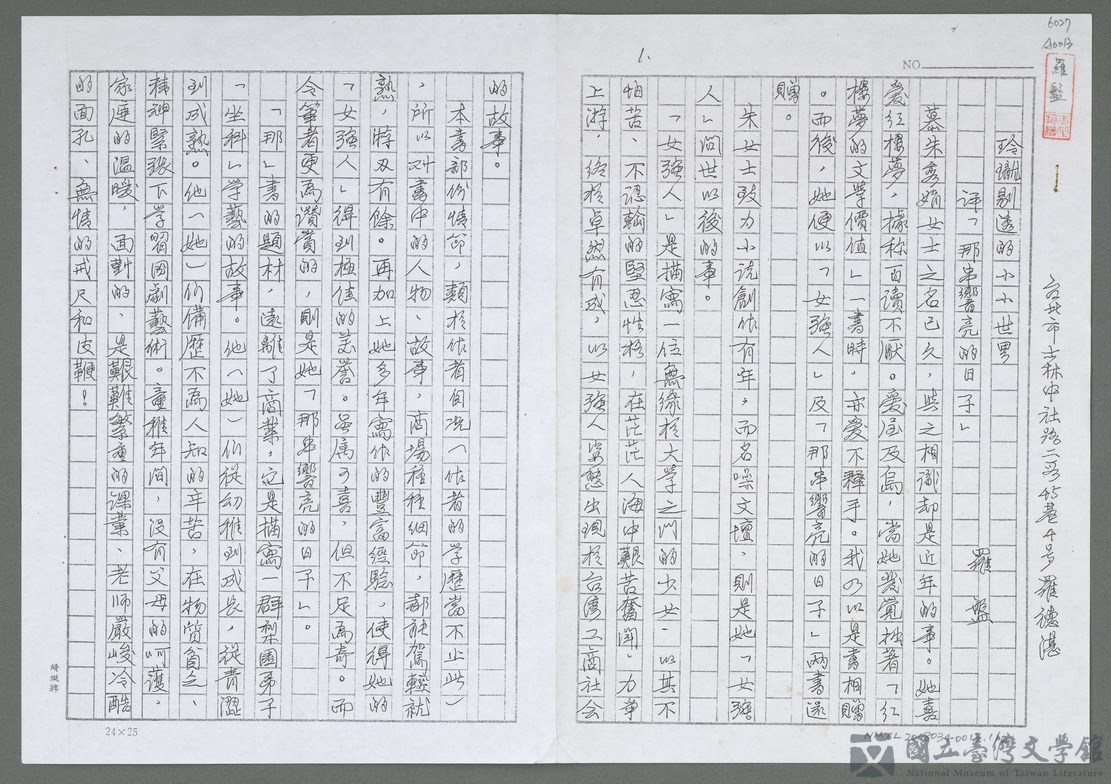 6027
A0013
羅盤
1.
NO.
台北市吉林中社路二段45巷4号羅德湛
玲瓏剔透的小小世界
評「那串響亮的日子」
羅 盤
慕朱秀娟女士之名已久，與之相識却是近年的事。她喜
愛紅樓夢，據称百讀不厭。愛屋及烏，當她發覺拙著「紅
樓夢的文學價值」一書時，亦愛不釋手。我乃以是書相贈
。而後，她便以「女強人」及「那串響亮的日子」兩書遠
贈。
朱女士致力小説創作有年，而名噪文壇，則是她「女強
人」問世以後的事。
「女強人」是描寫一位無緣於大學之門的少女，以其不
怕苦、不認輸的堅忍性格，在茫茫人海中艱苦奮鬥。力爭
上游，終於卓然有成，以女強人姿態出現於台湾工商社会
的故事。
本書部份情節，類於作者自况（作者的学歷當不止此）
，所以对書中的人物、故事，商場種種細節，都能駕輕就
熟，游刃有餘。再加上她多年寫作的豐富經驗，使得她的
「女強人」得到極佳的美誉。虽属可喜，但不足為奇。而
令筆者更為讚賞的，則是她「那串響亮的日子」。
「那」書的題材，遠離了商業，它是描寫一群梨園弟子
「坐科」学藝的故事。他（她）们從幼稚到成長，從青澀
到成熟。他（她）们備歷不為人知的辛苦，在物質貧乏、
精神緊張下学習国劇藝術。童稚年間，没有父母的呵護，
家庭的温暖，面對的，是艱難繁重的課業、老师嚴峻冷酷
的面孔、無情的戒尺和皮鞭！
24×25
國立臺灣文學館
National Museum of Taiwan Literature